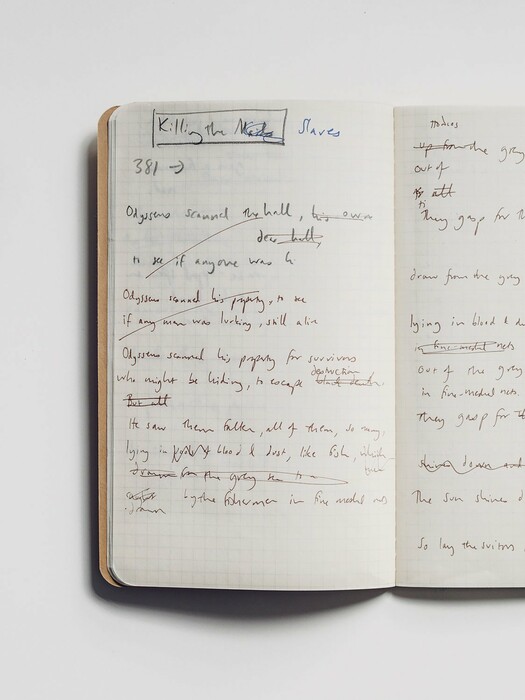 Killing the Maids Slaves
381 →
Odysseus scanned the hall, his own
dear hall,
to see if anyone was h
Odysseus scanned his property, to see
if any man was lurking, still alive
Odysseus scanned his property for survivors
who might be hiding, to escape destruction
black death
But all
He saw them fallen, all of them, so many,
lying in blood & dust, like fish,
drawn from the grey sea
by the fishermen in fine meshed nets
drawn
up from the grey
out of
all
They gasp for th
draw from the grey
lying in blood & du
in fine meshed nets
out of the grey
in fine-meshed nets.
They gasp for the
shines down and
The sun shines d
So lay the suitors